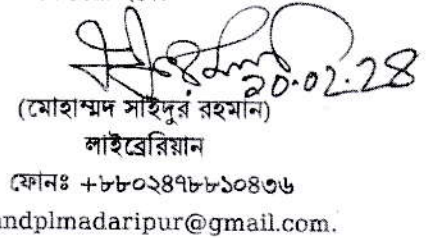 ২০.০২.২৪
(মোহাম্মদ সাইদুর রহমান)
লাইব্রেরিয়ান
ফোনঃ +৮৮০২৪৭৮৮১০৪৩৬
andplmadaripur@gmail.com.